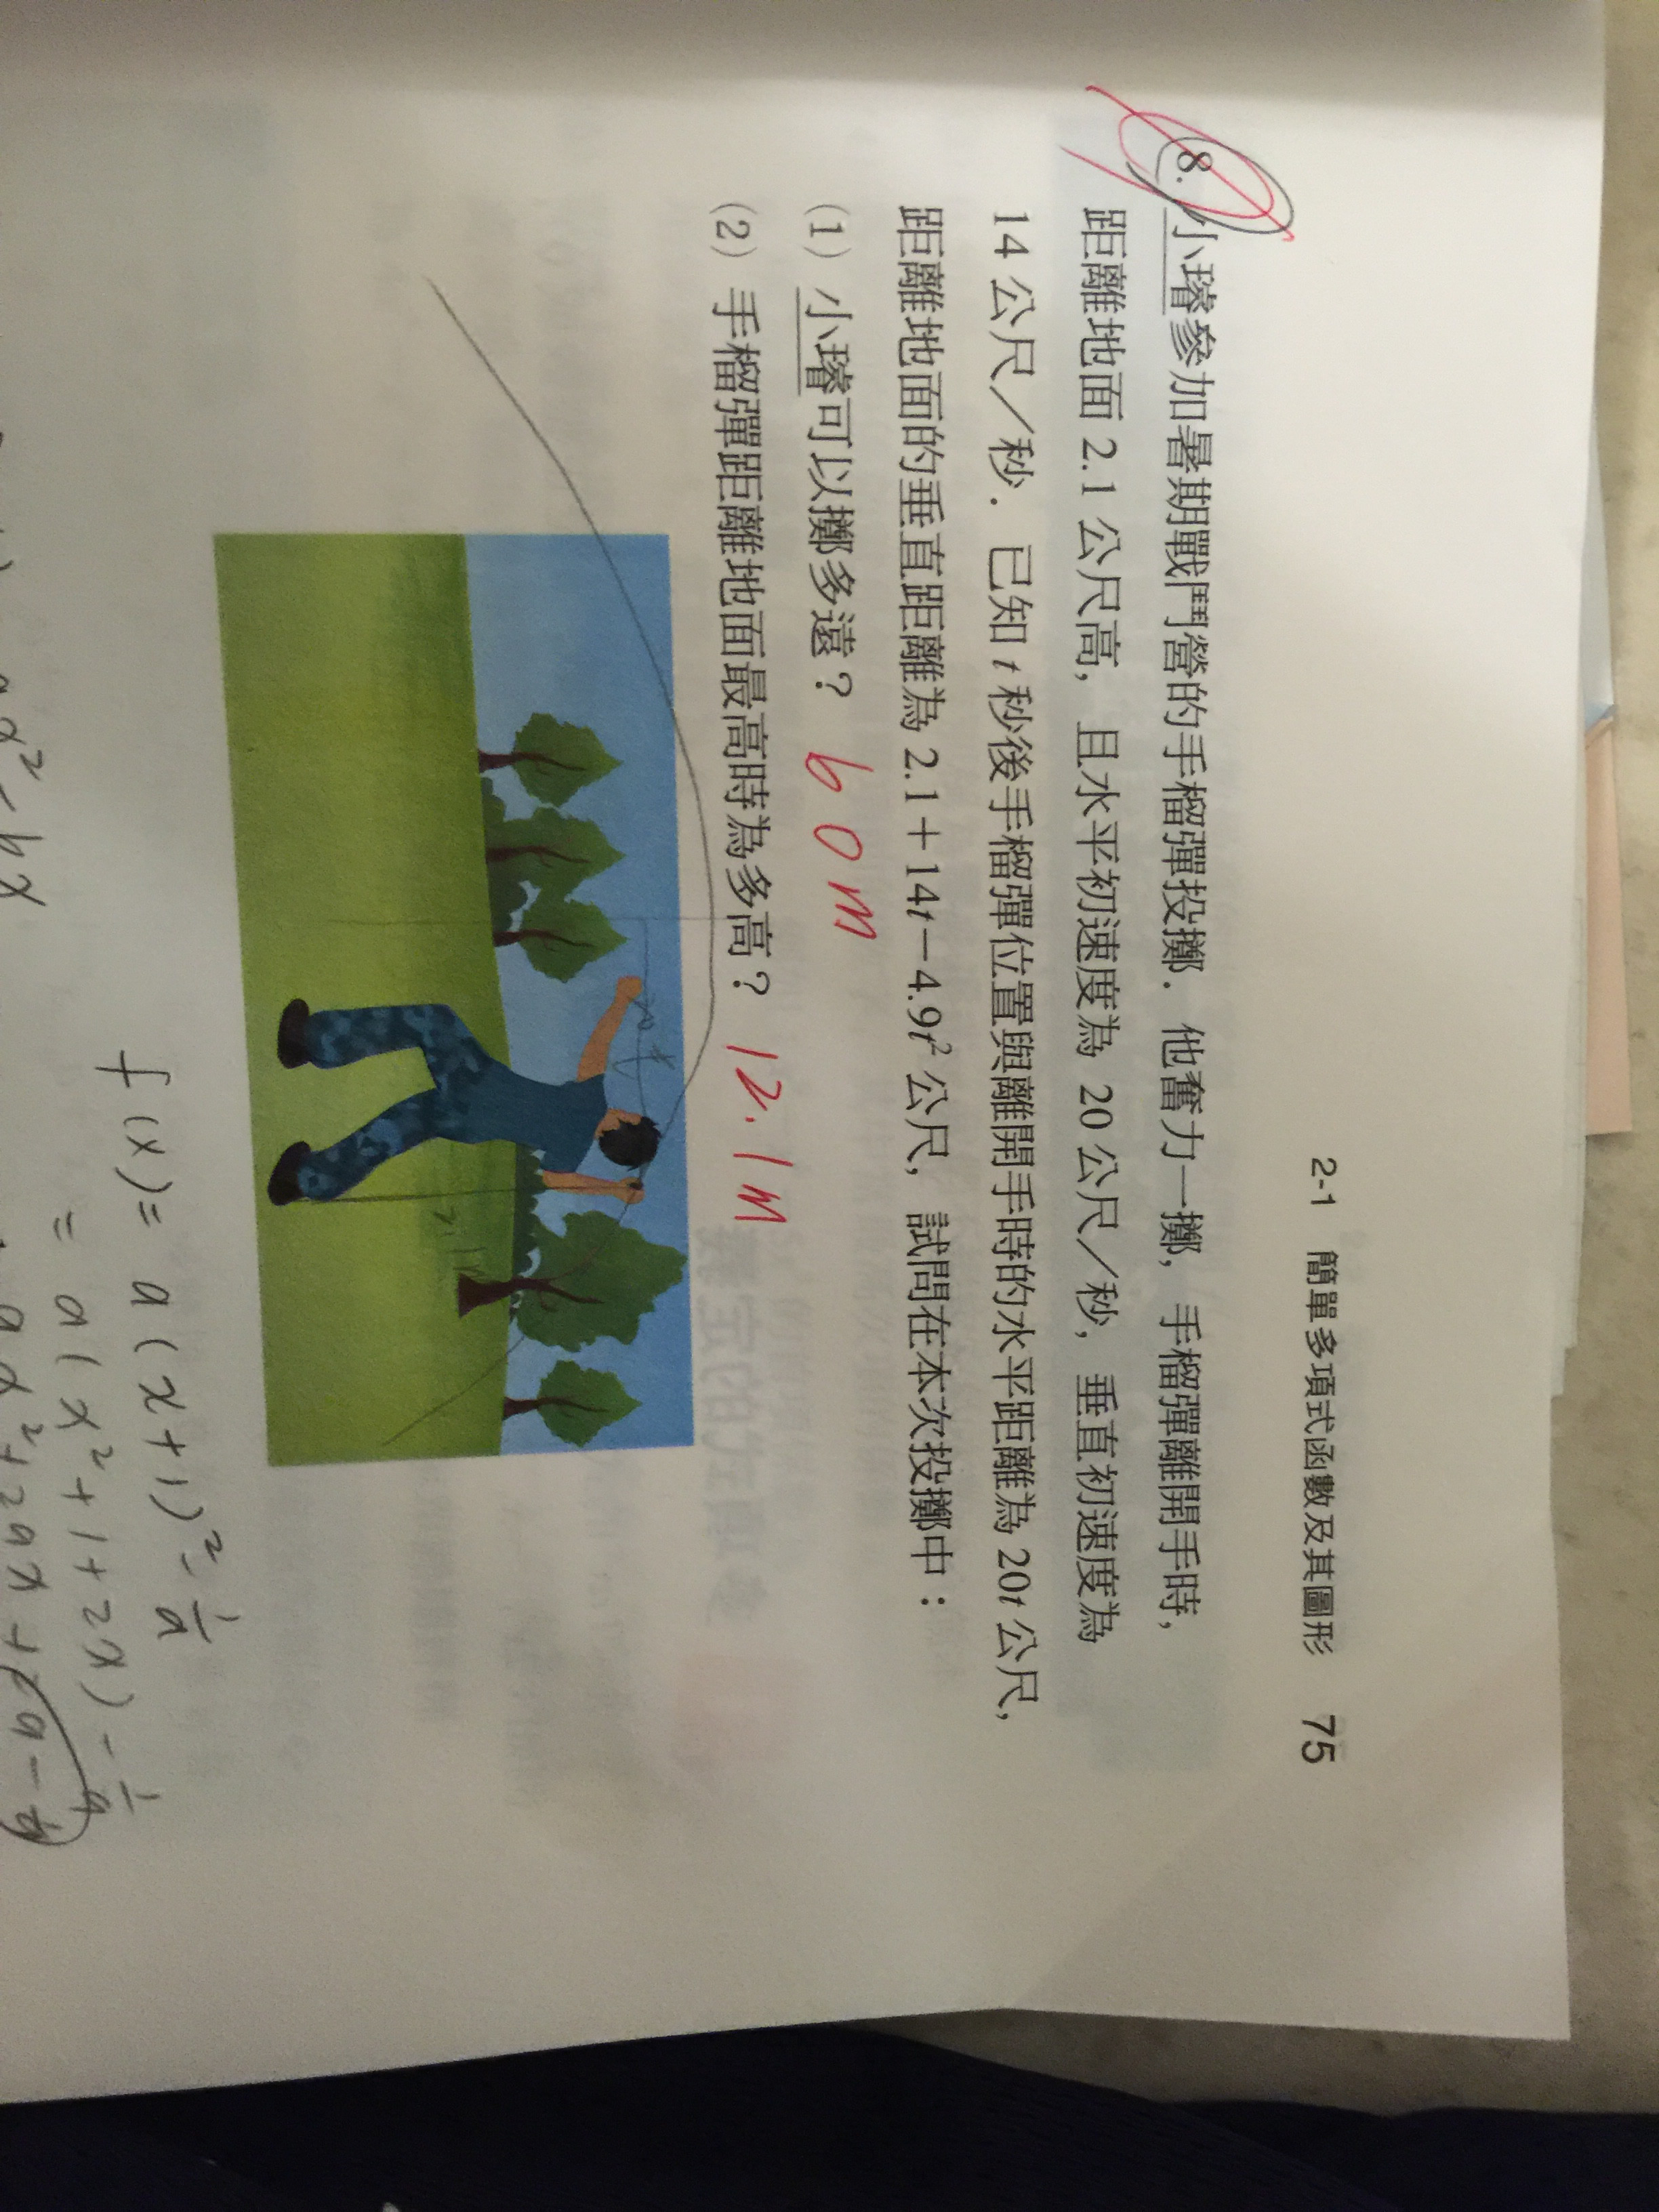 2-1 簡單多項式函數及其圖形 75
8. 小璿參加暑期戰鬥營的手榴彈投擲．他奮力一擲，手榴彈離開手時，
距離地面 2.1 公尺高，且水平初速度為 20 公尺／秒，垂直初速度為
14 公尺／秒．已知 t 秒後手榴彈位置與離開手時的水平距離為 20t 公尺，
距離地面的垂直距離為 2.1＋14t－4.9t² 公尺，試問在本次投擲中：
(1) 小璿可以擲多遠？ 60m
(2) 手榴彈距離地面最高時為多高？ 12.1m
f(x)= a(x+1)²-1/a
= a(x²+1+2x)-1/a